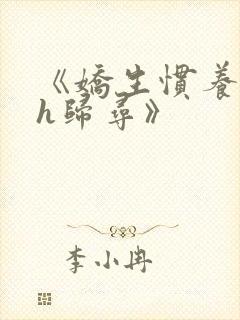 《嬌生慣養
h歸尋》
李小冉